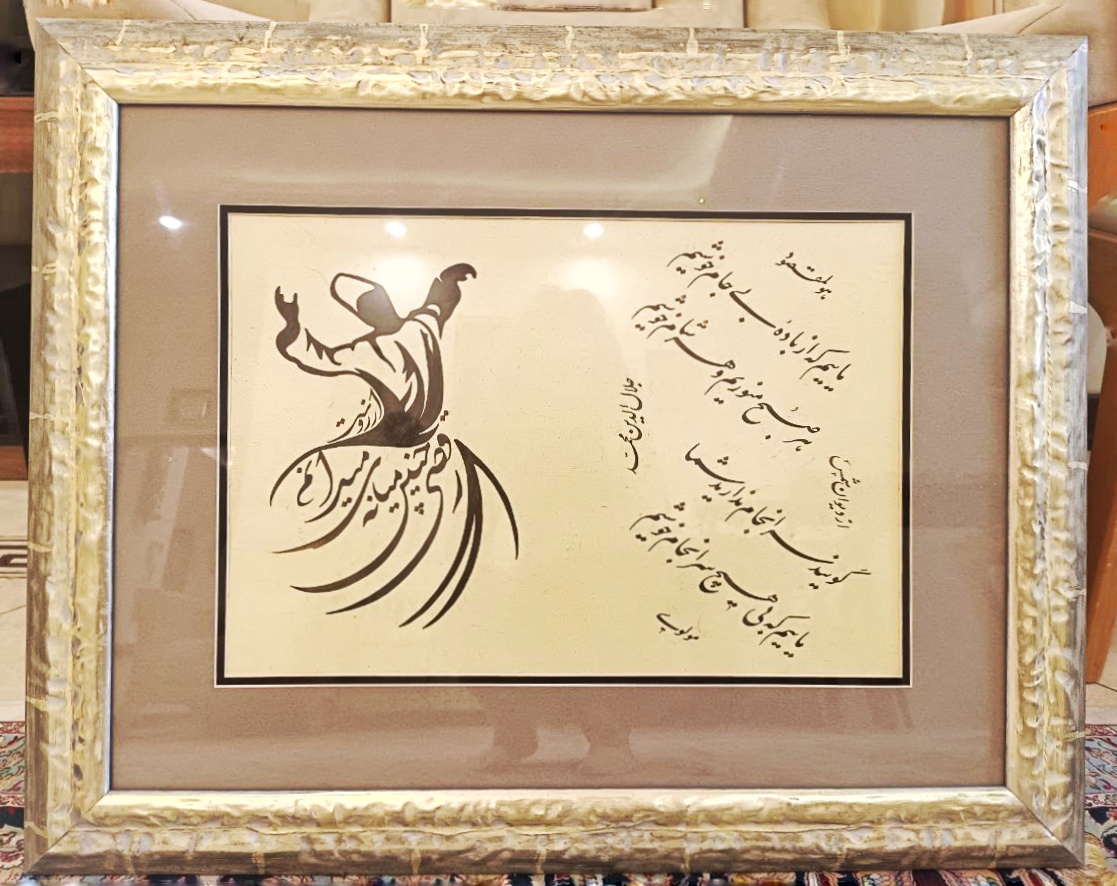 هوالمقصود
ماییم که از بادهٔ بی جام خوشیم
هر صبح منوریم و هر شام خوشیم
گویند سرانجام ندارید شما
ماییم که بی هیچ سرانجام خوشیم
مولوی
از دیوان شمس
جلال الدین محمد
رقصی چنین میانه میدانم آرزوست